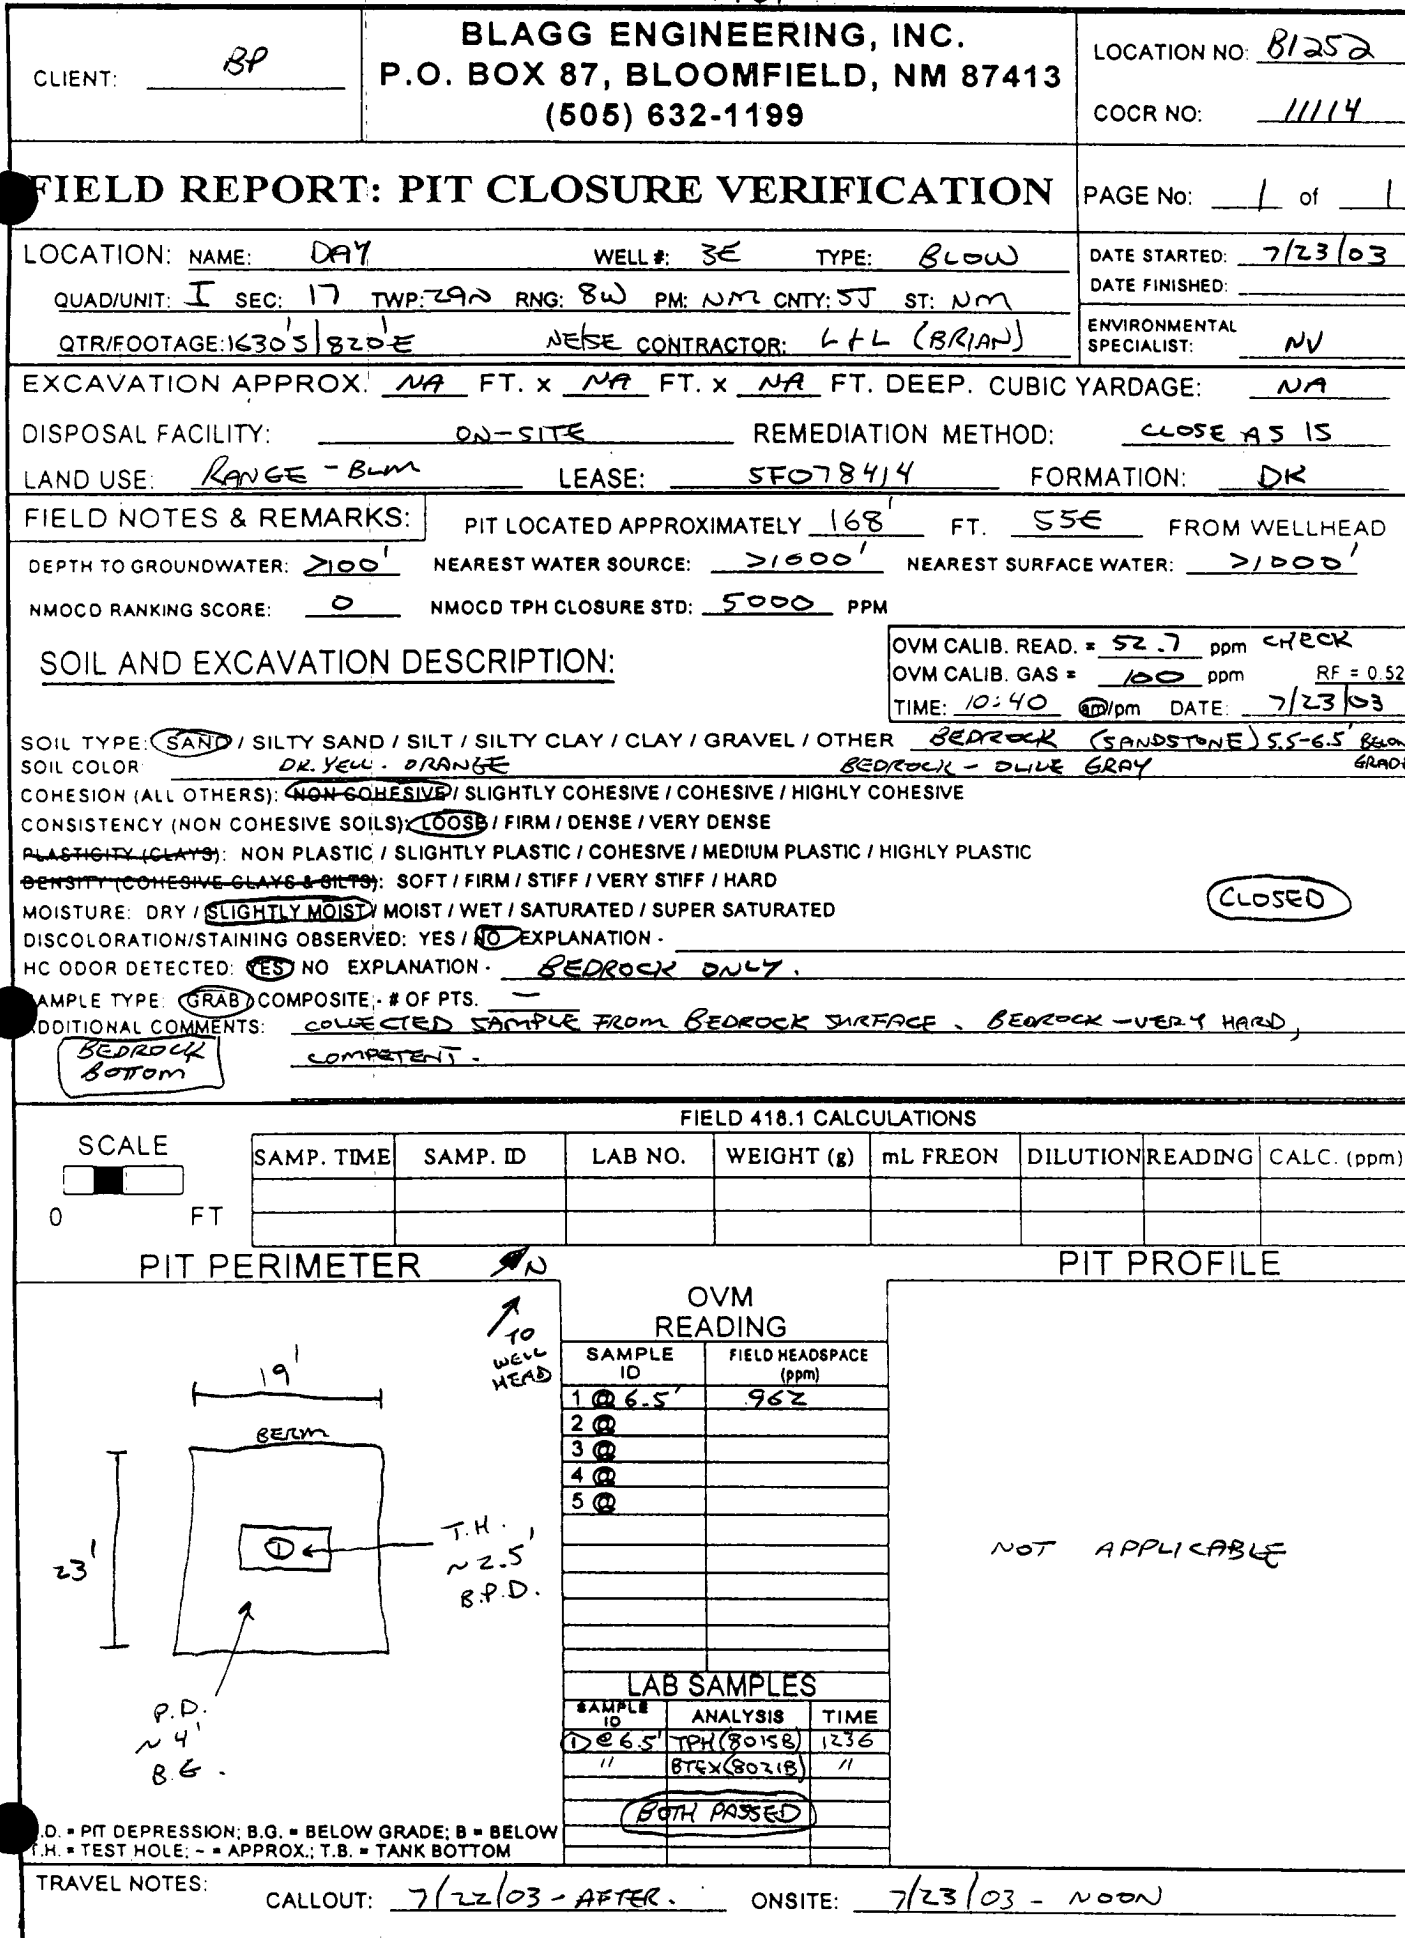 CLIENT: BP
BLAGG ENGINEERING, INC.
P.O. BOX 87, BLOOMFIELD, NM 87413
(505) 632-1199
LOCATION NO: B1252
COCR NO: 11114
FIELD REPORT: PIT CLOSURE VERIFICATION
PAGE No: 1 of 1
LOCATION: NAME: DAY WELL #: 3E TYPE: BLOW
QUAD/UNIT: I SEC: 17 TWP: 29N RNG: 8W PM: NM CNTY: SJ ST: NM
QTR/FOOTAGE: 1630'S/820'E NE/SE CONTRACTOR: L+L (BRIAN)
DATE STARTED: 7/23/03
DATE FINISHED:
ENVIRONMENTAL
SPECIALIST: NV
EXCAVATION APPROX. NA FT. x NA FT. x NA FT. DEEP. CUBIC YARDAGE: NA
DISPOSAL FACILITY: ON-SITE REMEDIATION METHOD: CLOSE AS IS
LAND USE: RANGE - BLM LEASE: SF078414 FORMATION: DK
FIELD NOTES & REMARKS: PIT LOCATED APPROXIMATELY 168' FT. S5E FROM WELLHEAD
DEPTH TO GROUNDWATER: >100' NEAREST WATER SOURCE: >1000' NEAREST SURFACE WATER: >1000'
NMOCD RANKING SCORE: 0 NMOCD TPH CLOSURE STD: 5000 PPM
SOIL AND EXCAVATION DESCRIPTION:
OVM CALIB. READ. = 52.7 ppm CHECK
OVM CALIB. GAS = 100 ppm RF = 0.52
TIME: 10:40 am/pm DATE: 7/23/03
SOIL TYPE: SAND / SILTY SAND / SILT / SILTY CLAY / CLAY / GRAVEL / OTHER BEDROCK (SANDSTONE) 5.5-6.5' BELOW
GRADE
SOIL COLOR: DK. YELL. ORANGE BEDROCK - OLIVE GRAY
COHESION (ALL OTHERS): NON COHESIVE / SLIGHTLY COHESIVE / COHESIVE / HIGHLY COHESIVE
CONSISTENCY (NON COHESIVE SOILS): LOOSE / FIRM / DENSE / VERY DENSE
PLASTICITY (CLAYS): NON PLASTIC / SLIGHTLY PLASTIC / COHESIVE / MEDIUM PLASTIC / HIGHLY PLASTIC
DENSITY (COHESIVE CLAYS & SILTS): SOFT / FIRM / STIFF / VERY STIFF / HARD
MOISTURE: DRY / SLIGHTLY MOIST / MOIST / WET / SATURATED / SUPER SATURATED
CLOSED
DISCOLORATION/STAINING OBSERVED: YES / NO EXPLANATION -
HC ODOR DETECTED: YES NO EXPLANATION - BEDROCK ONLY.
SAMPLE TYPE: GRAB COMPOSITE - # OF PTS. —
ADDITIONAL COMMENTS: COLLECTED SAMPLE FROM BEDROCK SURFACE. BEDROCK - VERY HARD,
COMPETENT.
BEDROCK
BOTTOM
FIELD 418.1 CALCULATIONS
SCALE
0 FT
SAMP. TIME SAMP. ID LAB NO. WEIGHT (g) mL FREON DILUTION READING CALC. (ppm)
PIT PERIMETER N
TO
WELL
HEAD
19'
BERM
23'
1
T.H.
~2.5'
B.P.D.
P.D.
~4'
B.G.
OVM
READING
SAMPLE ID FIELD HEADSPACE (ppm)
1 @ 6.5' 962
2 @
3 @
4 @
5 @
LAB SAMPLES
SAMPLE ID ANALYSIS TIME
1 @ 6.5' TPH(8015B) 1236
" BTEX(8021B) "
BOTH PASSED
PIT PROFILE
NOT APPLICABLE
P.D. = PIT DEPRESSION; B.G. = BELOW GRADE; B = BELOW
T.H. = TEST HOLE; ~ = APPROX.; T.B. = TANK BOTTOM
TRAVEL NOTES: CALLOUT: 7/22/03 - AFTER. ONSITE: 7/23/03 - NOON